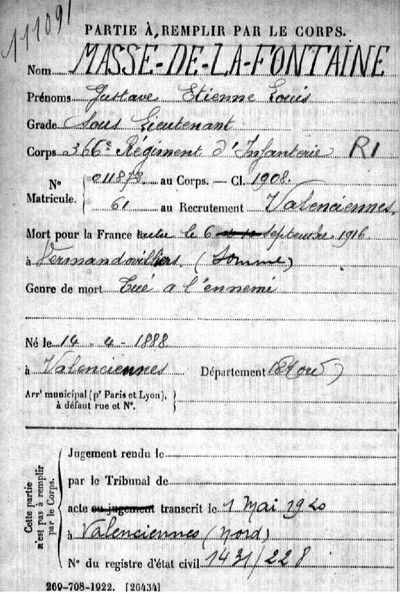 111091
PARTIE À REMPLIR PAR LE CORPS.
Nom MASSE-DE-LA-FONTAINE
Prénoms Gustave Etienne Louis
Grade Sous Lieutenant
Corps 366e Régiment d'Infanterie RI
N° 011873 au Corps. — Cl. 1908.
Matricule. 61 au Recrutement Valenciennes.
Mort pour la France le 6 septembre 1916
à Vermandovillers (Somme)
Genre de mort Tué a l'ennemi
Né le 14 - 4 - 1888
à Valenciennes Département (Nord)
Arrt municipal (pr Paris et Lyon),
à défaut rue et N°.
Cette partie
n'est pas à remplir
par le Corps.
Jugement rendu le
par le Tribunal de
acte ou jugement transcrit le 1 Mai 1920
à Valenciennes (Nord)
N° du registre d'état civil 1431/228
269-708-1922. [26434]